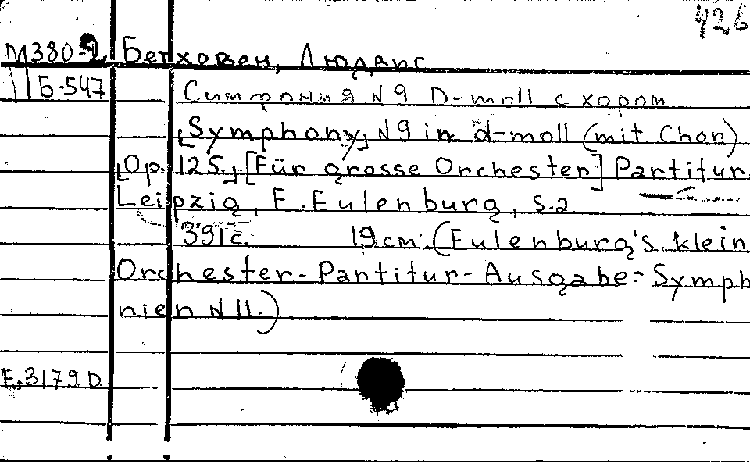 426
М380-2 Бетховен, Людвиг
Б-547 Симфония N9 D-moll с хором
[Symphony] N9 in d-moll (mit Chor)
[Op. 125] [Für grosse Orchester] Partitur
Leipzig, E. Eulenburg, s.a
391c. 19 см. (Eulenburg's klein
Orchester-Partitur-Ausgabe-Symph
nien N11.)
E, 3179D